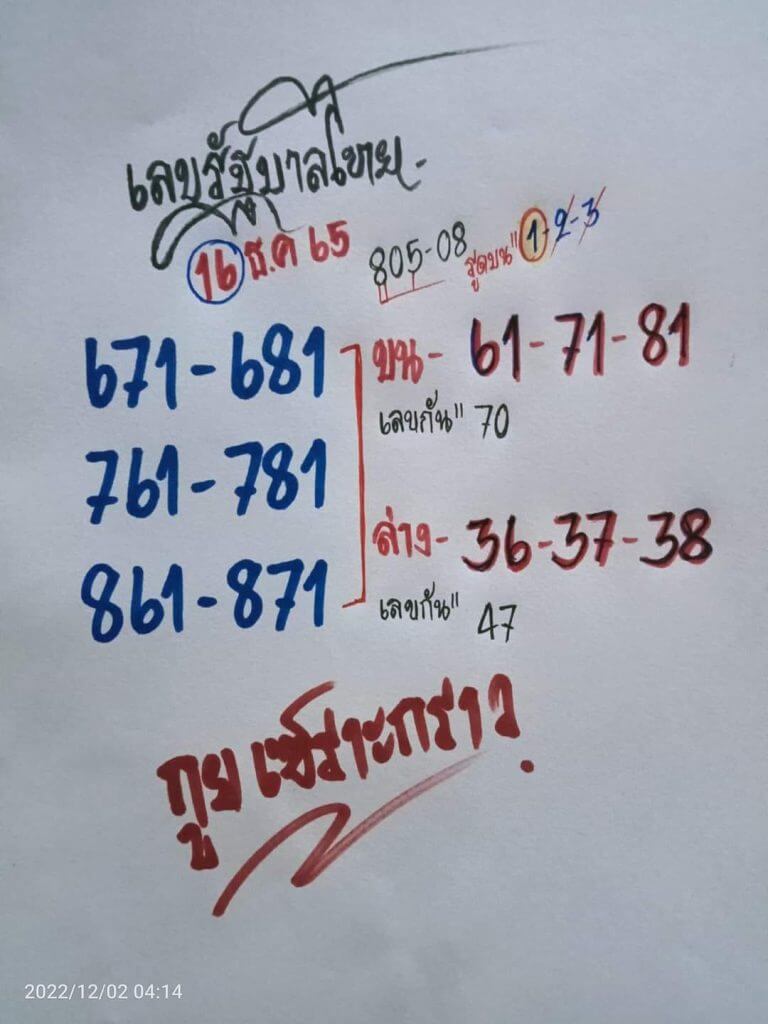 เลขรัฐบาลไทย-
16 ธ.ค 65
805-08 สูตรบน" 1-2-3
671-681
บน- 61-71-81
เลขกัน" 70
761-781
ล่าง- 36-37-38
861-871
เลขกัน" 47
2022/12/02 04:14